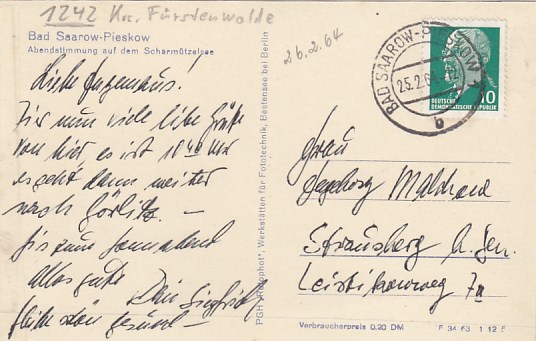 1242 Kr. Fürstenwalde
Bad Saarow-Pieskow
Abendstimmung auf dem Scharmützelsee
26.2.64
BAD SAAROW-PIESKOW
25.2.6
b
DEUTSCHE
DEMOKRATISCHE REPUBLIK
10
Liebe
Hier nun viele liebe Grüße
von hier, es ist 18 40 Uhr
es geht dann weiter
nach Görlitz. –
Bis zum Sonnabend
alles gute
Dein Siegfried
bleibe schön gesund –
PGH „Fotophot“, Werkstätten für Fototechnik, Bestensee bei Berlin
Frau
Strausberg b. Bln.
Leistikowweg 7a
Verbraucherpreis 0,20 DM
F 34 63 1 12 5